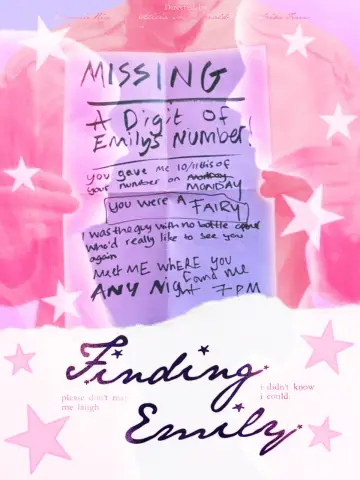 MISSING
A Digit of
Emilys Number!
you gave me 10/11ths of
your number on Monday
MONDAY
YOU WERE A FAIRY
I was the guy with no bottle
who'd really like to see you
again
Meet ME WHERE YOU
Found me
ANY Night 7PM
Finding
please don't make
me laugh
i didn't know
i could.
Emily